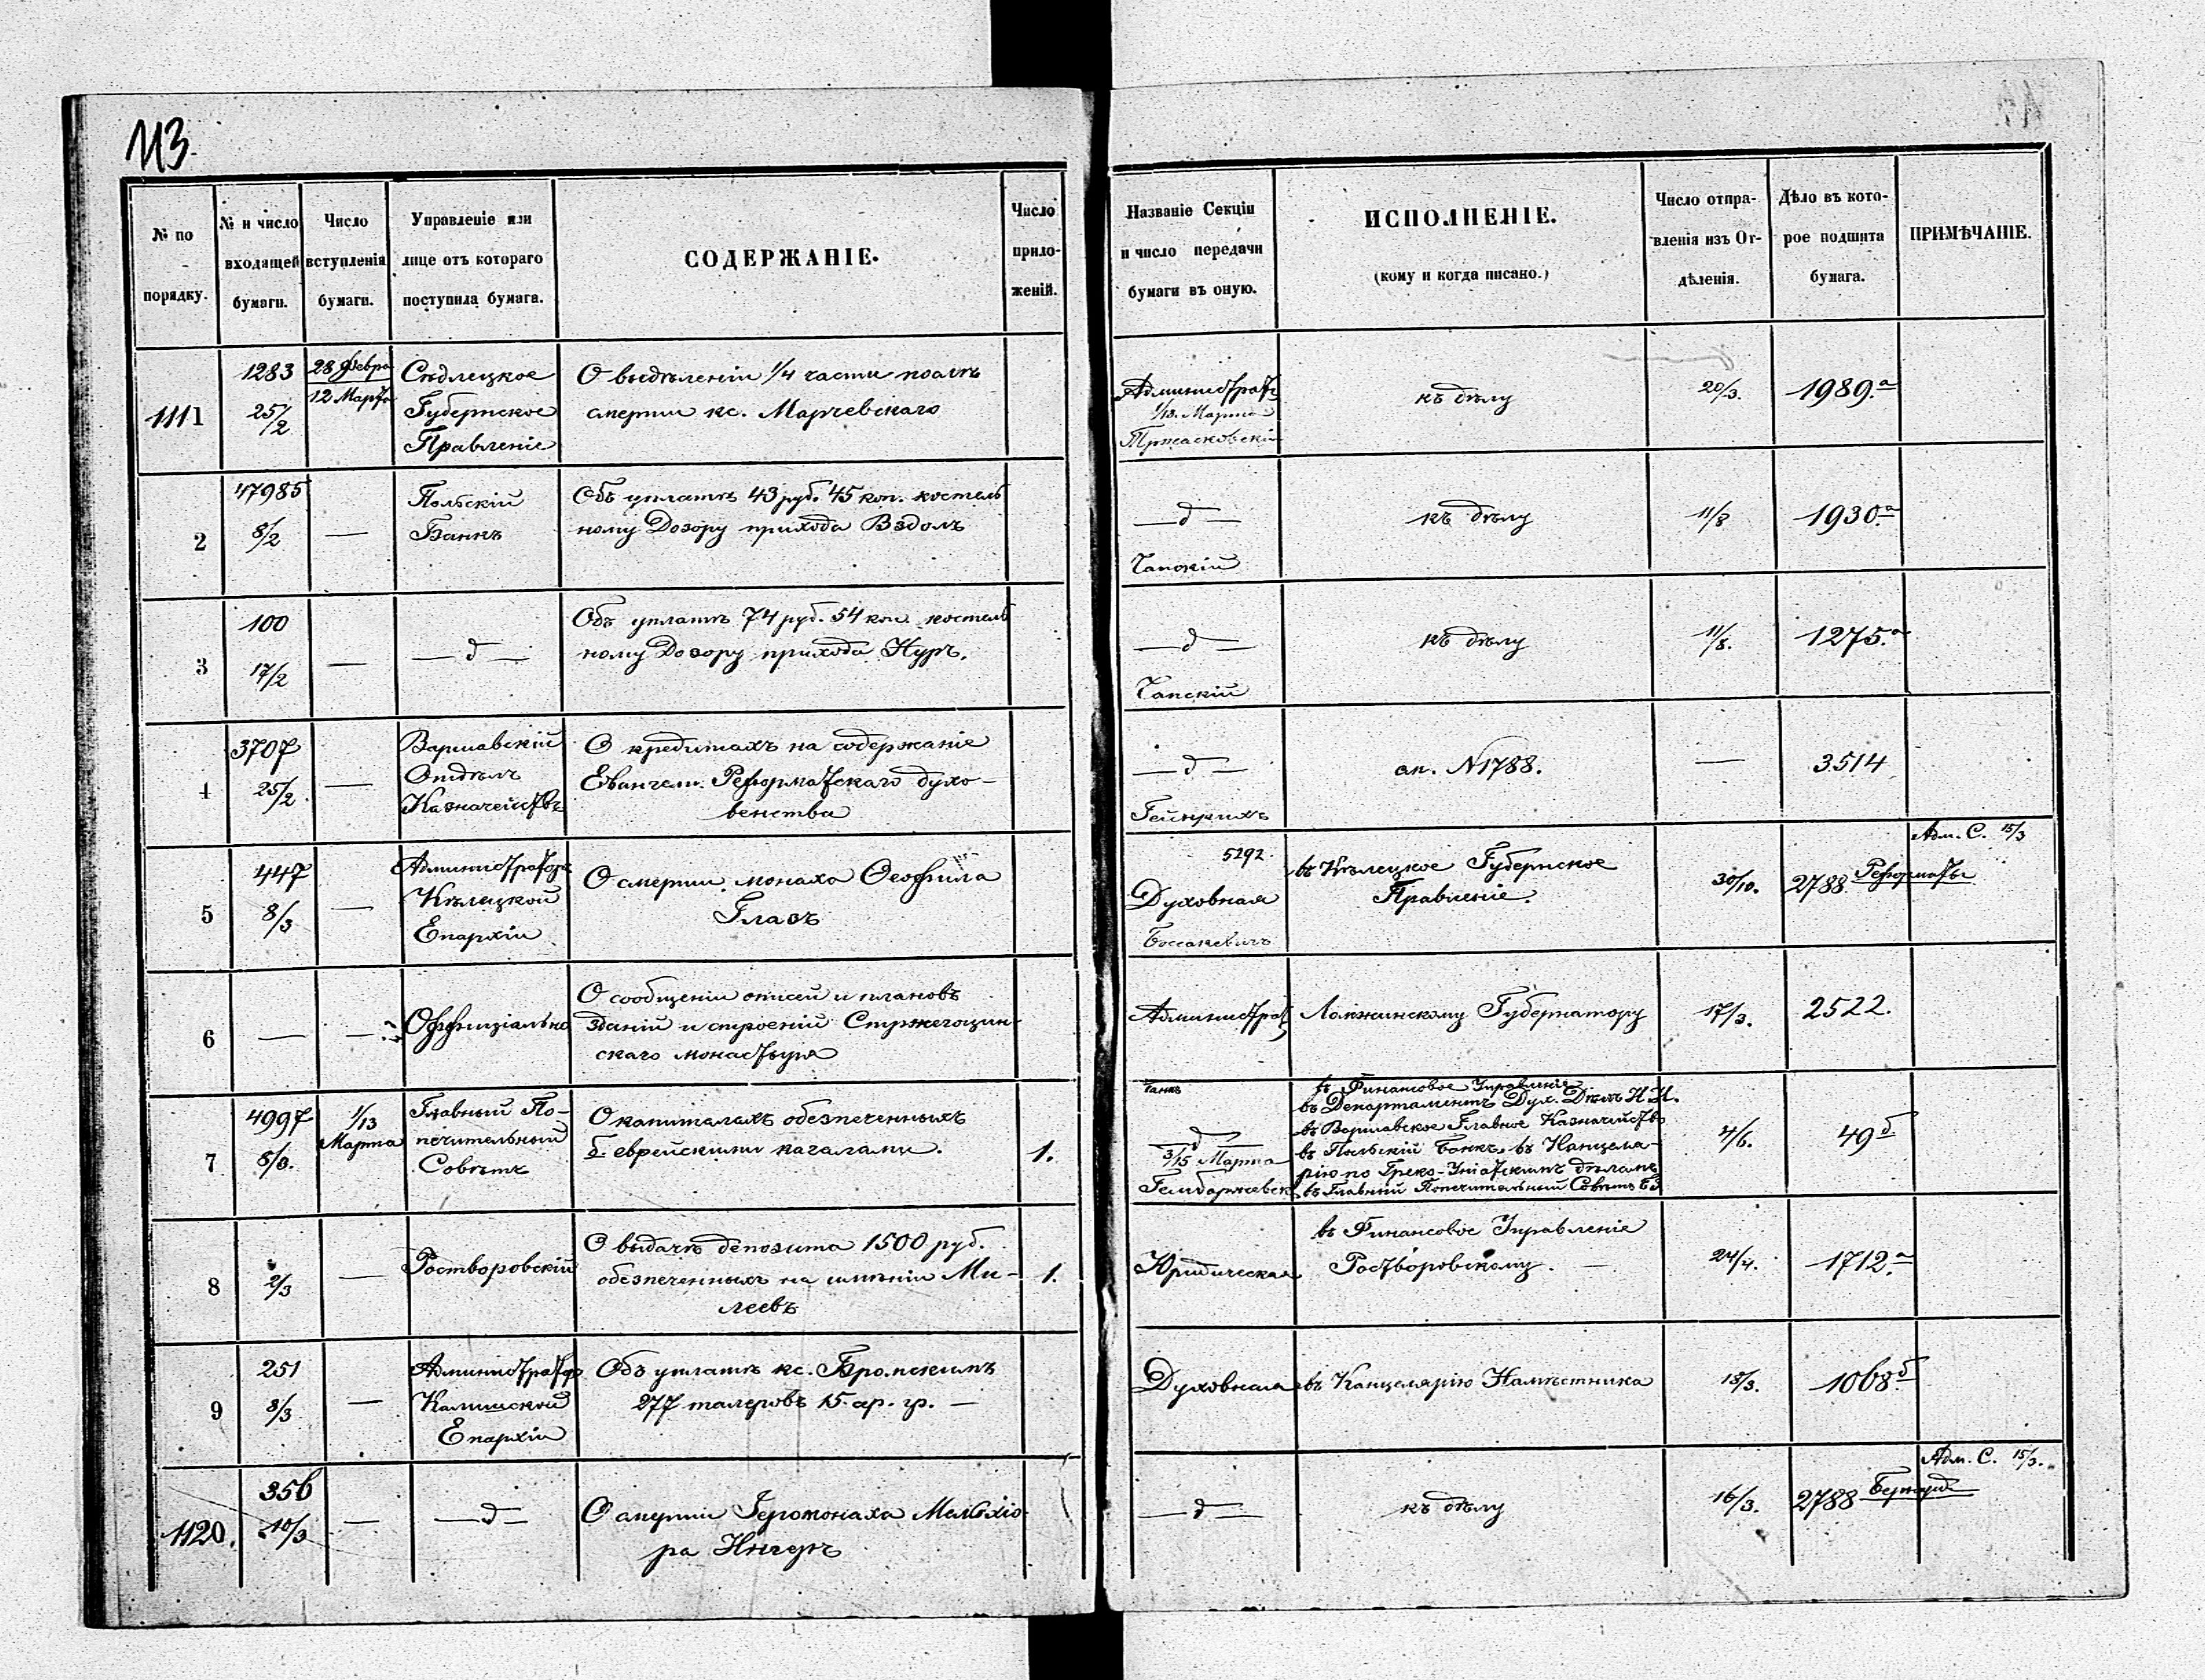 113.
№ по порядку.
№ и число входящей бумаги.
Число вступленія бумаги.
Управленіе или лице отъ котораго поступила бумага.
СОДЕРЖАНІЕ.
Число приложеній.
Названіе Секціи и число передачи бумаги въ оную.
ИСПОЛНЕНІЕ.
(кому и когда писано.)
Число отправленія изъ Отдѣленія.
Дѣло въ которое подшита бумага.
ПРИМѢЧАНІЕ.
1111
1283
25/2
28 Февра
12 Марта
Сѣдлецкое
Губернское
Правленіе
О выдѣленіи 1/4 части послѣ
смерти кс. Марчевскаго
Администрат
1/13. Марта
къ дѣлу
20/3.
1989.а
2
47985
8/2
—
Польскій
Банкъ
Объ уплатѣ 43 руб. 45 коп. костель
ному Дозору прихода Вздолъ
— д —
Чапскій
къ дѣлу
11/8
1930.а
3
100
17/2
—
— д —
Объ уплатѣ 74 руб. 54 коп. костель
ному Дозору прихода Нуръ.
— д —
Чапскій
къ дѣлу
11/8.
1275.а
4
3707
25/2.
—
Варшавскій
Отдѣлъ
Казначействъ
О кредитахъ на содержаніе
Евангели. Реформатскаго духо-
венства
— д —
Гейнрихъ
ап. N1788.
—
3514
5
447
8/3
—
Администраторъ
Кѣлецкой
Епархіи
О смерти монаха Ѳеофила
Глазъ
5292.
Духовная
въ Кѣлецкое Губернское
Правленіе.
30/10.
2788 Реформаты
Адм. С. 15/3
6
—
—
Оффиціально
О сообщеніи описей и плановъ
зданій и строеній Стржегоцин-
скаго монастыря
Администрат
Ломжинскому Губернатору
17/3.
2522.
7
4997
8/3.
1/13
Марта
Главный По-
печительный
Совѣтъ
О капиталахъ обезпеченныхъ
б. еврейскими кагалами.
1.
д
3/15 Марта
Гембаржевск
въ Финансовое Управленіе
въ Департаментъ Дух. Дѣлъ И. И.
въ Варшавское Главное Казначейство
въ Польскій Банкъ, въ Канцеля-
рію по Греко-Уніатскимъ дѣламъ
въ Главный Попечительный Совѣтъ
4/6.
49 б
8
2/3
—
Ростворовскій
О выдачѣ депозита 1500 руб.
обезпеченныхъ на имѣніи Ми-
леевъ
1.
Юридическая
въ Финансовое Управленіе
Ростворовскому. —
24/4.
1712.а
9
251
8/3
—
Администраторъ
Калишской
Епархіи
Объ уплатѣ кс.
277 талеровъ 15 ср. гр. —
Духовная
въ Канцелярію Намѣстника
18/3.
1068.б
1120.
356
10/3
—
— д —
О смерти Іеромонаха Мельхіо-
ра
— д —
къ дѣлу
16/3.
2788 Бернард
Адм. С. 15/3.